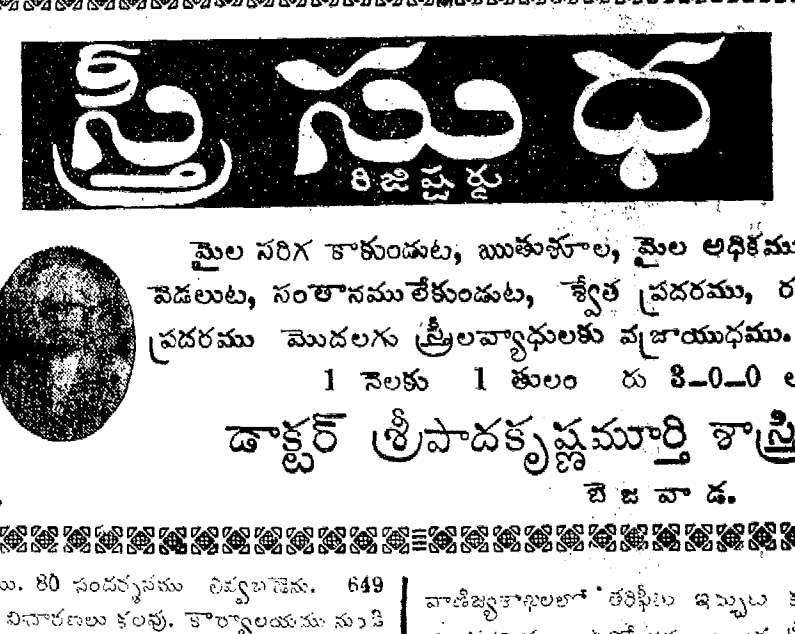 స్త్రీ సుధ
రిజిష్టర్డు
మైల సరిగ కాకుండుట, ఋతుశూల, మైల అధికము
వెడలుట, సంతానములేకుండుట, శ్వేత ప్రదరము, ర
ప్రదరము మొదలగు స్త్రీలవ్యాధులకు వజ్రాయుధము.
1 నెలకు 1 తులం రు 3-0-0 ల
డాక్టర్ శ్రీపాదకృష్ణమూర్తి శాస్త్రి
బెజవాడ.
ము. 80 సందర్శనము లివ్వబడెను. 649
విచారణలు కలవు. కార్యాలయము నుండి
వాణిజ్యశాఖలలో తరిఫీదు ఇచ్చుట